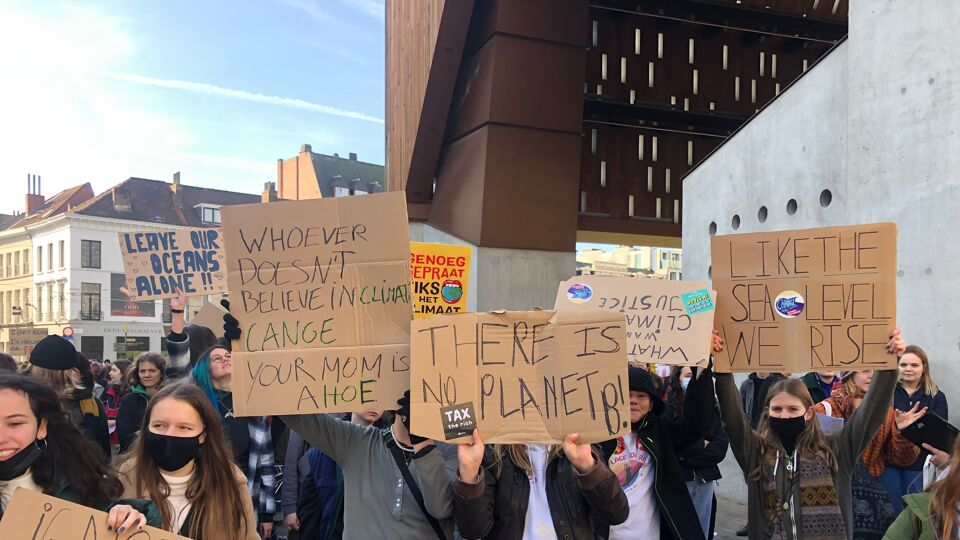 LEAVE OUR
OCEANS
ALONE!!
WHOEVER
DOESN'T
BELIEVE IN CLIMAT
CANGE
YOUR MOM IS
A HOE
GENOEG
GEPRAAT
HET
KLIMAAT
THERE IS
NO PLANET B!
TAX
the rich
JUSTICE
WHAT
WE
WANT
CLIMA
LIKE THE
SEA LEVEL
WE RISE